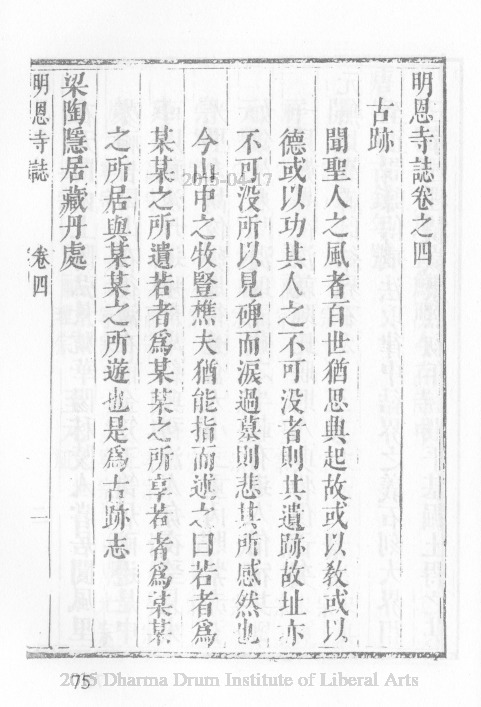 明恩寺誌卷之四
古跡
聞聖人之風者百世猶思興起故或以教或以
德或以功其人之不可没者則其遺跡故址亦
不可没所以見碑而淚過墓則悲其所感然也
今山中之牧豎樵夫猶能指而述之曰若者為
某某之所遺若者為某某之所享若者為某某
之所居與某某之所遊也是為古跡志
梁陶隱居藏丹處
明恩寺誌 卷四 一
75
2015-04-17
2015 Dharma Drum Institute of Liberal Arts